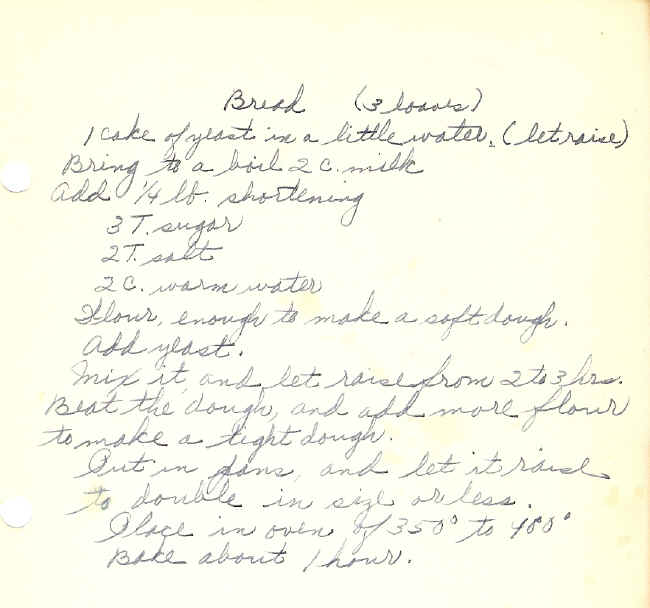 Bread (3 loaves)
1 cake of yeast in a little water. (let raise)
Bring to a boil 2 c. milk
Add 1/4 lb. shortening
3 T. sugar
2 T. salt
2 C. warm water
Flour, enough to make a soft dough.
Add yeast.
Mix it, and let raise from 2 to 3 hrs.
Beat the dough, and add more flour
to make a tight dough.
Put in pans, and let it raise
to double in size or less.
Place in oven of 350° to 400°
Bake about 1 hour.